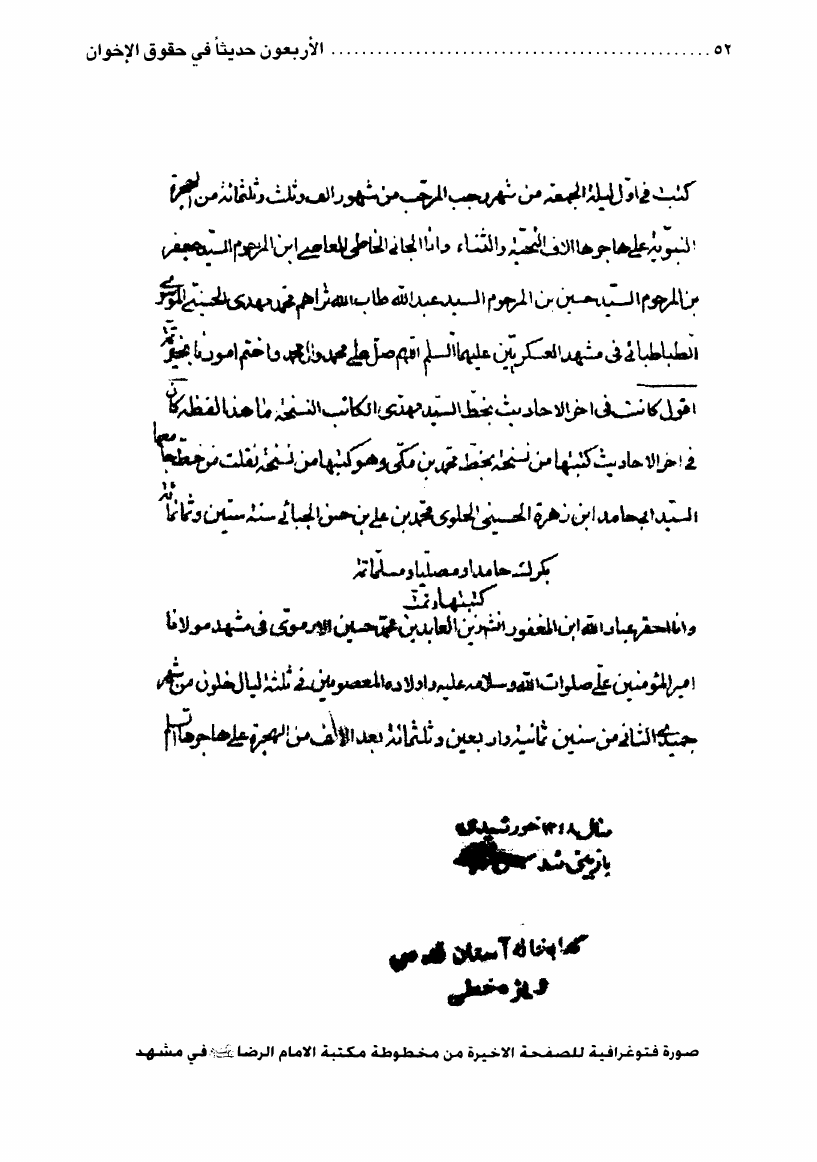 ٥٢ ........................................ الأربعون حديثاً في حقوق الإخوان
كتبت فى اوّل ليلة الجمعه من شهر رجب المرجّب من شهور الف وثلث وثلثمائة من الهجرة
النبويّة على هاجرها الاف التحيّة والثناء وانا الجانى الخاطى العاصى ابن المرحوم السيّد جعفر
بن المرحوم السيّد حسين بن المرحوم السيد عبد الله طاب الله ثراهم محمّد مهدى الحسينى الموسوى
الطباطبائى فى مشهد العسكريّين عليهما السلم اللهم صل على محمد وال محمد واختم امورنا بخير
اقول كانت فى اخر الاحاديث بخط السيّد مهدى الكاتب النسخة ما هذا لفظه كان
فى اخر الاحاديث كتبتها من نسخة بخط محمّد بن مكّى وهو كتبها من نسخة نقلت من خط
السيّد ابى حامد ابن زهرة الحسينى الحلوى محمّد بن على بن حسن الجبائى سنة ستين وثمانمائة
بكرك حامدا ومصلّيا ومسلّما
كتبتها وتمّت
وانا احقر عباد الله ابن المغفور زين العابدين محمّد حسين الارموى فى مشهد مولانا
امير المؤمنين على صلوات الله وسلامه عليه واولاده المعصومين فى ثلثة ليال خلون من شهر
جميدى الثانى من سنين ثمانية واربعين وثلثمائة بعد الالف من الهجرة على هاجرها
سال ١٣٤٨ خورشیدی
بازبینی شد
کتابخانه آستان قدس
خطی
صورة فتوغرافية للصفحة الاخيرة من مخطوطة مكتبة الامام الرضا في مشهد